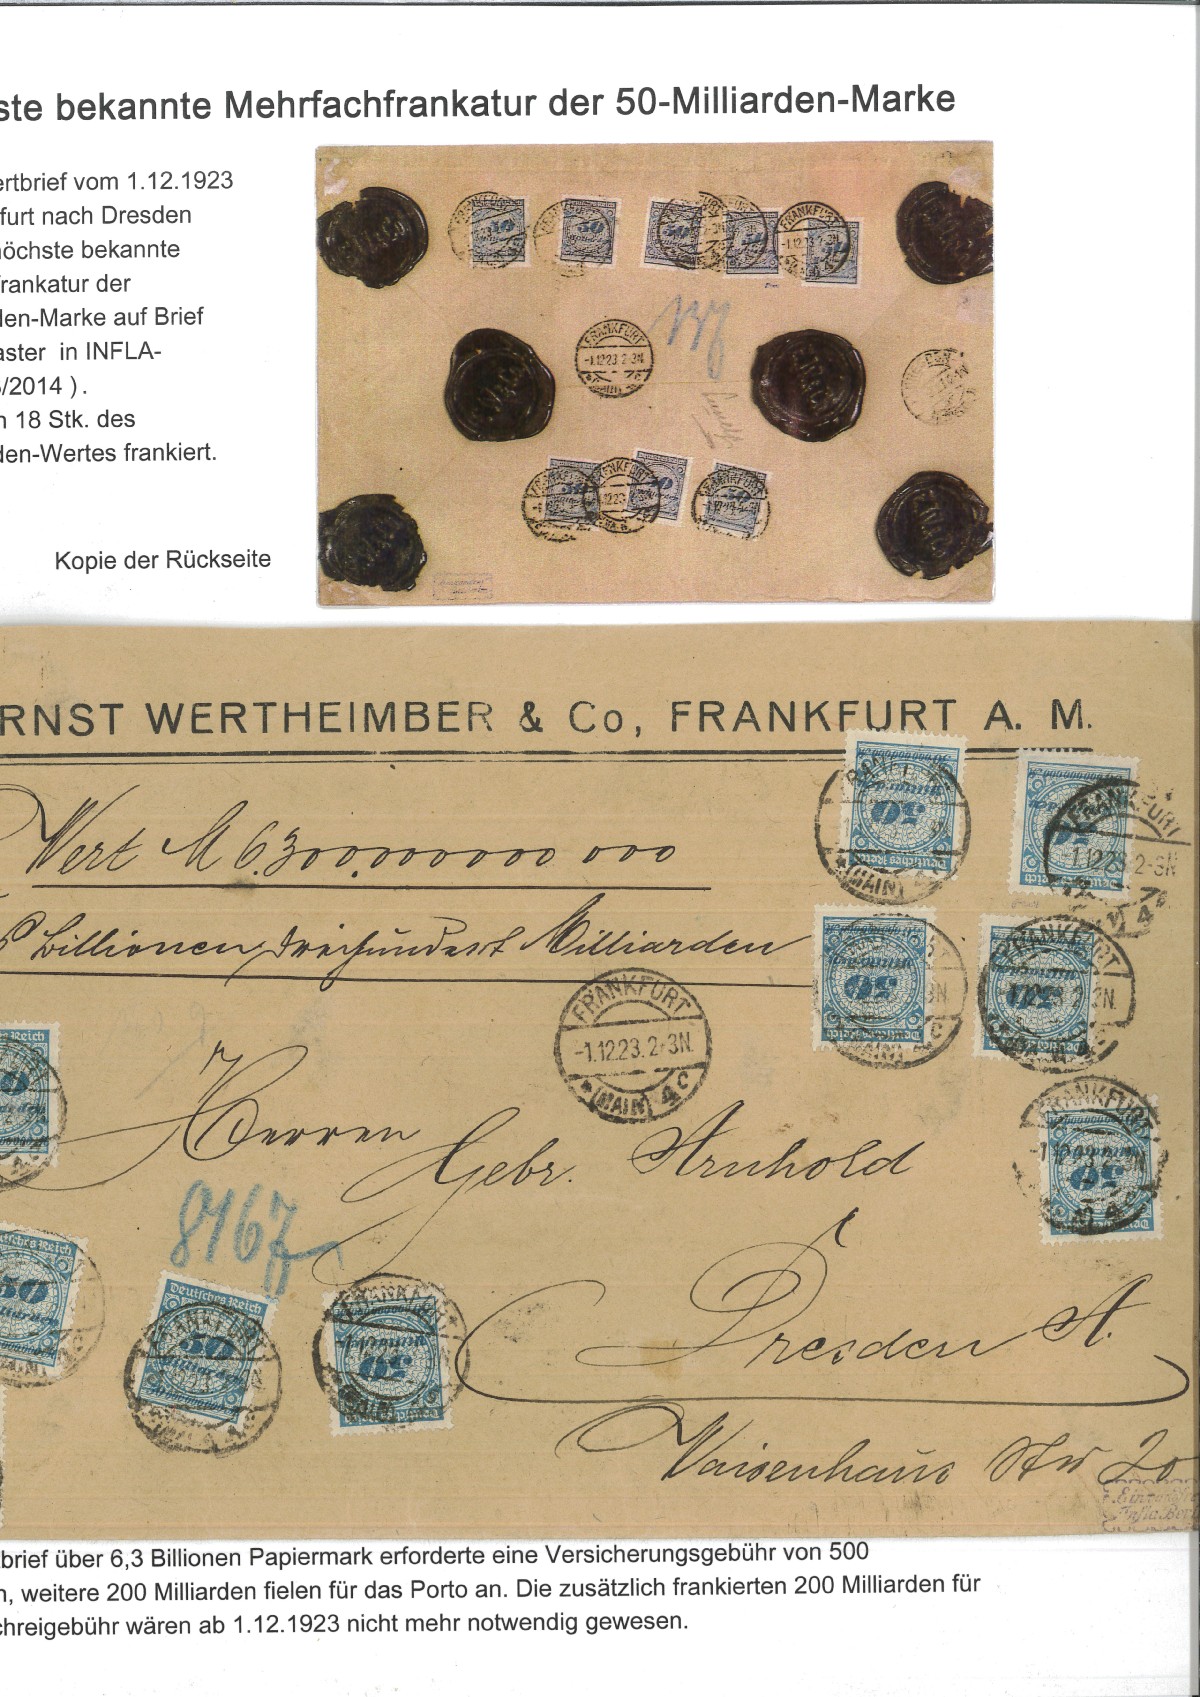 ste bekannte Mehrfachfrankatur der 50-Milliarden-Marke
ertbrief vom 1.12.1923
furt nach Dresden
höchste bekannte
frankatur der
den-Marke auf Brief
aster in INFLA-
/2014 ).
n 18 Stk. des
den-Wertes frankiert.
Kopie der Rückseite
FRANKFURT
-1.12.23.2-3N.
(MAIN)
RNST WERTHEIMBER & Co, FRANKFURT A. M.
Wert M 6.300.000 000 000
Billionen dreihundert Milliarden
FRANKFURT
-1.12.23.2-3N.
*(MAIN) 4C
Herren
Gebr. Arnhold
8167
Dresden A.
Waisenhaus Str 20
Deutsches Reich
50
brief über 6,3 Billionen Papiermark erforderte eine Versicherungsgebühr von 500
n, weitere 200 Milliarden fielen für das Porto an. Die zusätzlich frankierten 200 Milliarden für
chreigebühr wären ab 1.12.1923 nicht mehr notwendig gewesen.